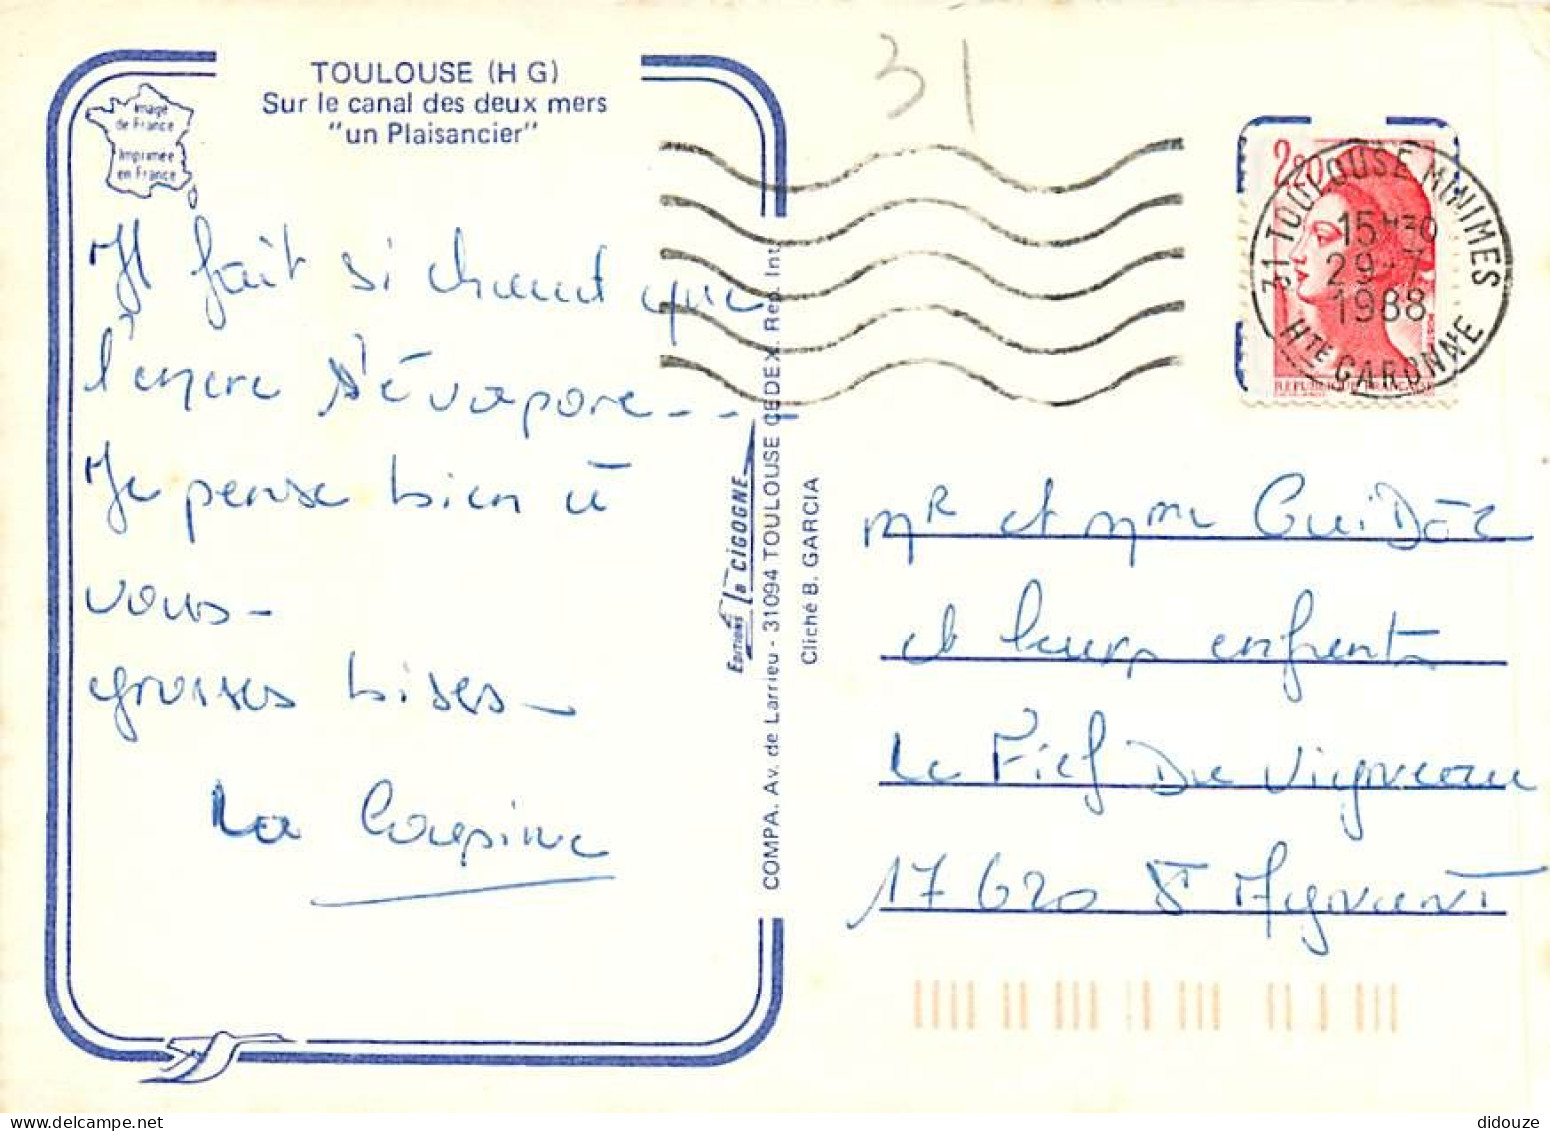 TOULOUSE (H G)
Sur le canal des deux mers
"un Plaisancier"
Image
de France
Imprimée
en France
Il fait si chaud que
l'encre s'évapore---
Je pense bien à
vous-
grosses bises-
La Coupine
EDITIONS la CIGOGNE
COMPA. Av. de Larrieu - 31094 TOULOUSE CEDEX. Rep. Int.
Cliché B. GARCIA
31
2,20
31 TOULOUSE MINIMES
15H
29-7
1988
HTE GARONNE
REPUBLIQUE FRANCAISE
MR et Mme
et leurs enfants
Le Fief Du Vigneau
17620 St Agnant
didouze